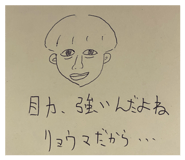 目力、強いんだよね
リョウマだから…